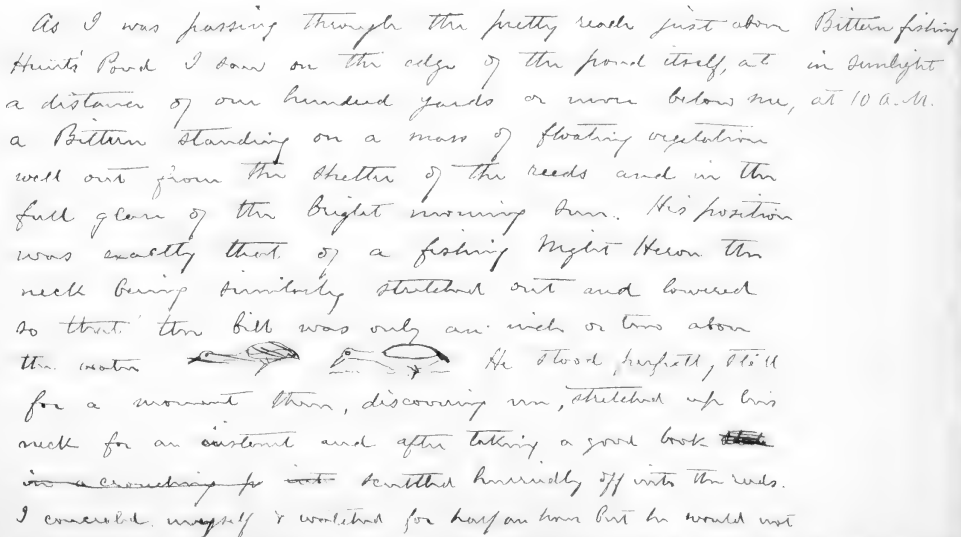 As I was passing through the pretty reach just above
Hunt's Pond I saw on the edge of the pond itself, at
a distance of one hundred yards or more below me,
a Bittern standing on a mass of floating vegetation
well out from the shelter of the reeds and in the
full glare of the bright morning sun. His position
was exactly that of a fishing Night Heron the
neck being similarly stretched out and lowered
so that the bill was only an inch or two above
the water He stood perfectly still
for a moment then, discovering me, stretched up his
neck for an instant and after taking a good look
in a crouching po scuttled hurriedly off into the reeds.
I concealed myself & watched for half an hour but he would not
Bittern fishing
in sunlight
at 10 A.M.